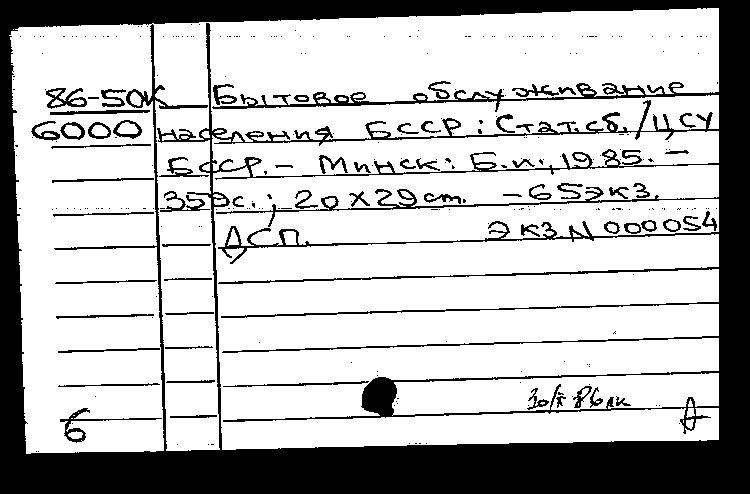 86-50К Бытовое обслуживание
6000 населения БССР: Стат.сб./ЦСУ
БССР.- Минск: Б.и., 1985. -
359с.; 20х29cm. -65экз.
ДСП. Экз N 000054
6